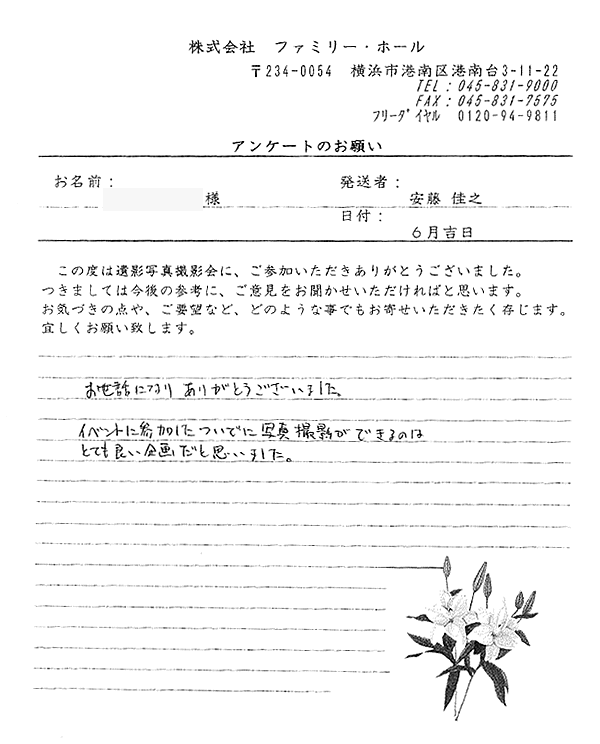 株式会社　ファミリー・ホール
〒234-0054　横浜市港南区港南台3-11-22
TEL：045-831-9000
FAX：045-831-7575
フリーダイヤル　0120-94-9811
アンケートのお願い
お名前：
様
発送者：
安藤 佳之
日付：
６月吉日
この度は遺影写真撮影会に、ご参加いただきありがとうございました。
つきましては今後の参考に、ご意見をお聞かせいただければと思います。
お気づきの点や、ご要望など、どのような事でもお寄せいただきたく存じます。
宜しくお願い致します。
お世話になり ありがとうございました。
イベントに参加したついでに写真撮影ができるのは
とても良い企画だと思いました。